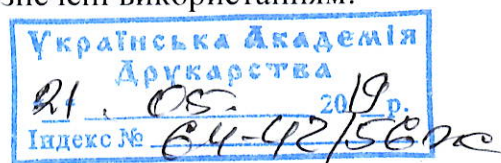 значені використанням.
Українська Академія
Друкарства
21 . 05. 2019 р.
Індекс № 64-42/560с